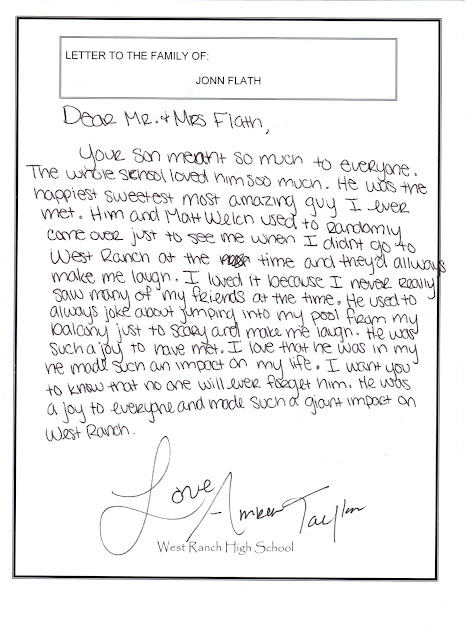 LETTER TO THE FAMILY OF:
JONN FLATH
Dear Mr. + Mrs Flath,
Your son meant so much to everyone.
The whole school loved him soo much. He was the
happiest sweetest most amazing guy I ever
met. Him and Matt Welch used to randomly
come over just to see me when I didnt go to
West Ranch at the time and they'd allways
make me laugh. I loved it because I never really
saw many of my friends at the time. He used to
always joke about jumping into my pool from my
balcony just to scare and make me laugh. He was
such a joy to have met. I love that he was in my
he made such an impact on my life. I want you
to know that no one will ever forget him. He was
a joy to everyone and made such a giant impact on
West Ranch.
Love
Taylor
West Ranch High School